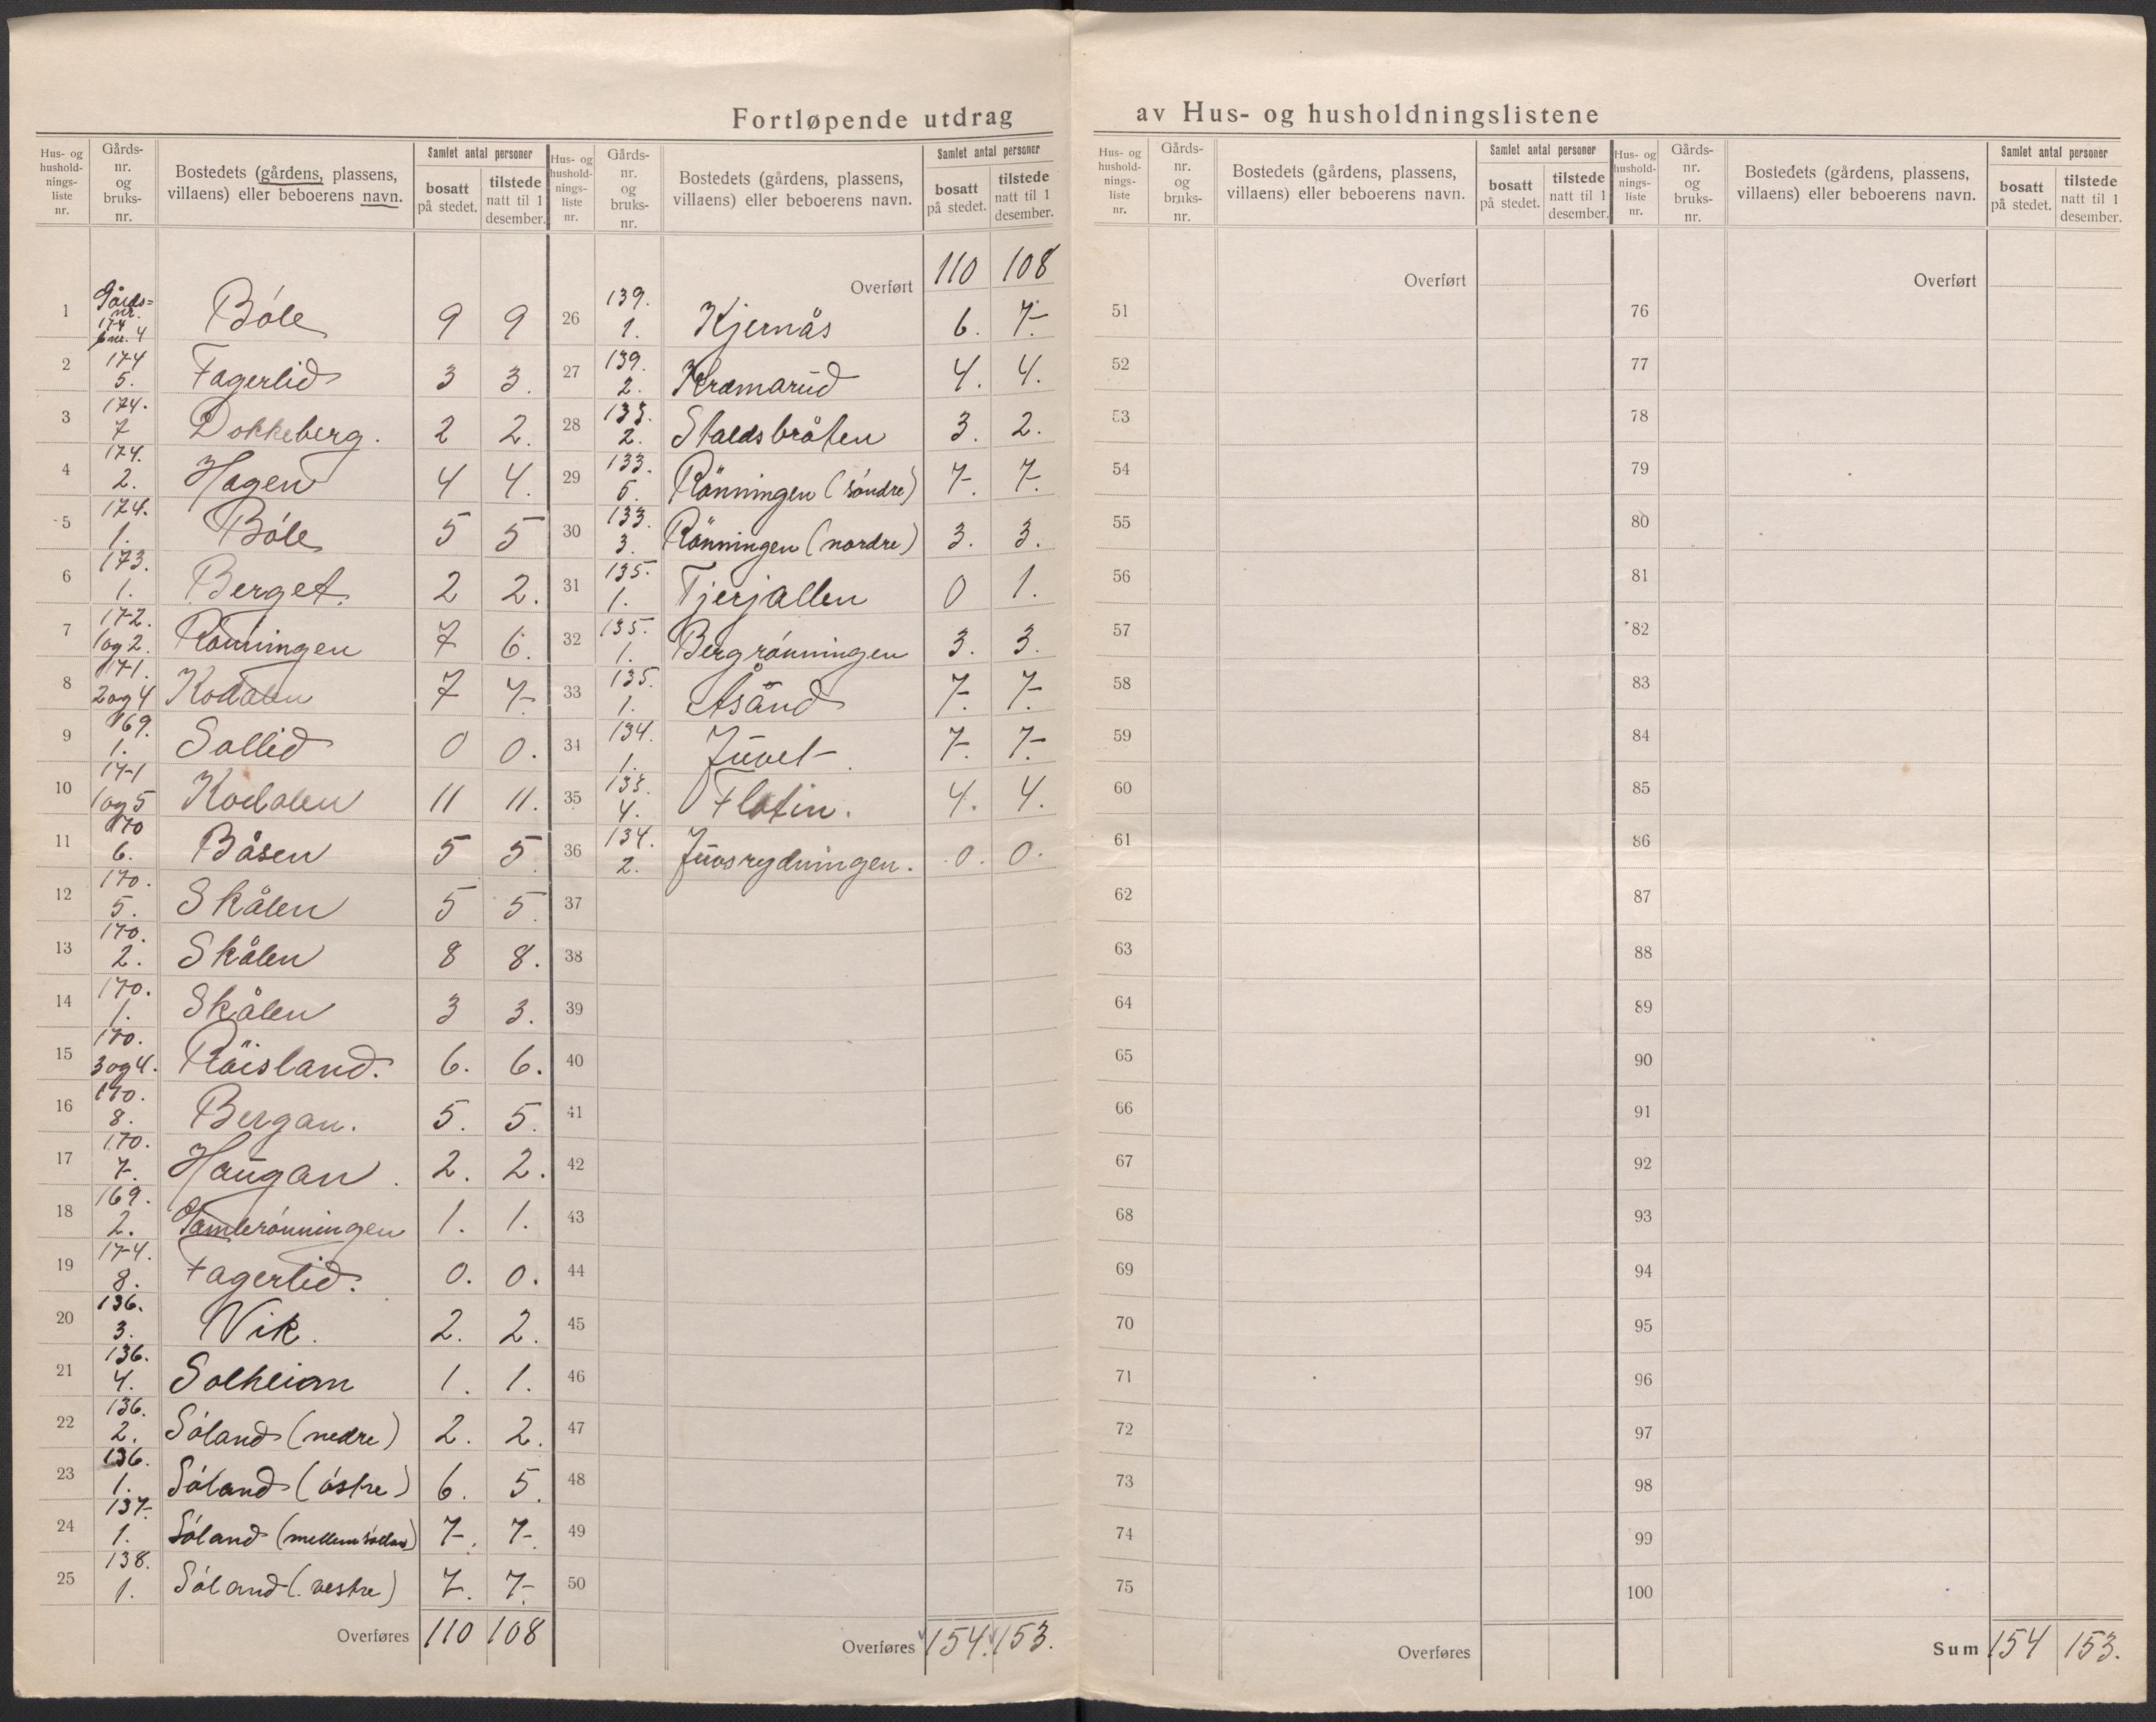 Fortløpende utdrag av Hus- og husholdningslistene
Hus- og hushold-nings-liste nr. Gårds-nr. og bruks-nr. Bostedets (gårdens, plassens, villaens) eller beboerens navn. Samlet antal personer bosatt på stedet. tilstede natt til 1 desember.
Hus- og hushold-nings-liste nr. Gårds-nr. og bruks-nr. Bostedets (gårdens, plassens, villaens) eller beboerens navn. Samlet antal personer bosatt på stedet. tilstede natt til 1 desember.
Hus- og hushold-nings-liste nr. Gårds-nr. og bruks-nr. Bostedets (gårdens, plassens, villaens) eller beboerens navn. Samlet antal personer bosatt på stedet. tilstede natt til 1 desember.
Hus- og hushold-nings-liste nr. Gårds-nr. og bruks-nr. Bostedets (gårdens, plassens, villaens) eller beboerens navn. Samlet antal personer bosatt på stedet. tilstede natt til 1 desember.
1 Gårds-nr. 174 bnr. 4 Bóle 9 9
2 174 5. Fagerlid 3 3.
3 174. 7 Dokkeberg. 2 2.
4 174. 2. Hagen 4 4.
5 174. 1. Bóle 5 5
6 173. 1. Berget. 2 2.
7 172. 1og2. Rönningen 7 6.
8 171. 2og4 Kodalen 7 7.
9 169. 1. Sollid 0 0.
10 171 1og5 Kodalen 11 11.
11 170 6. Båsen 5 5
12 170. 5. Skålen 5 5.
13 170. 2. Skålen 8 8.
14 170. 1. Skålen 3 3.
15 170. 3og4. Röisland. 6. 6.
16 170. 8. Bergan. 5. 5.
17 170. 7. Haugan. 2. 2.
18 169. 2. 1. 1.
19 174. 8. Fagerlid. 0. 0.
20 136. 3. Vik. 2. 2.
21 136. 4. Solheim 1. 1.
22 136. 2. Sóland (nedre) 2. 2.
23 136. 1. Sóland (óstre) 6. 5.
24 137. 1. Sóland 7. 7.
25 138. 1. Sóland (vestre) 7. 7.
Overføres 110 108
Overført 110 108
26 139. 1. Kjernås 6. 7.
27 139. 2. Kræmarud 4. 4.
28 133. 2. Staldsbråten 3. 2.
29 133. 5. Rönningen (söndre) 7. 7.
30 133. 3. Rönningen (nordre) 3. 3.
31 135. 1. Tjerjallen 0 1.
32 135. 1. Bergrónningen 3. 3.
33 135. 1. Åsånd 7. 7.
34 134. 1. Juvet. 7. 7.
35 133. 4. Flatin. 4. 4.
36 134. 2. Juvsrydningen. 0. 0.
37
38
39
40
41
42
43
44
45
46
47
48
49
50
Overføres 154. 153.
Overført
51
52
53
54
55
56
57
58
59
60
61
62
63
64
65
66
67
68
69
70
71
72
73
74
75
Overføres
Overført
76
77
78
79
80
81
82
83
84
85
86
87
88
89
90
91
92
93
94
95
96
97
98
99
100
Sum 154 153.